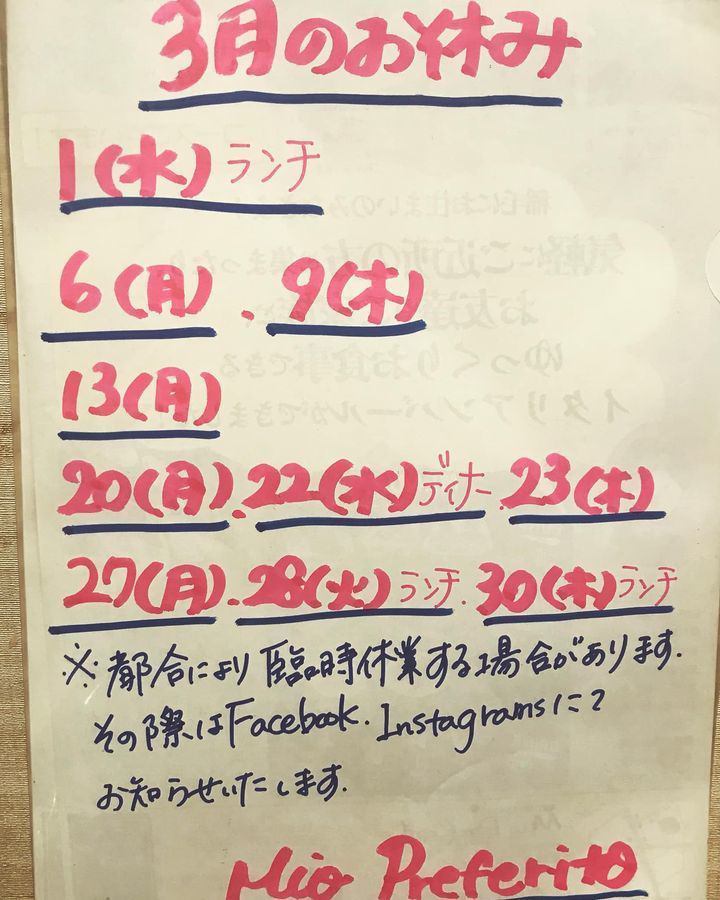 3月のお休み
1(水)ランチ
6(月)．9(木)
13(月)
20(月)．22(水)ディナー．23(木)
27(月)．28(火)ランチ．30(木)ランチ
※都合により臨時休業する場合があります．
その際はFacebook．Instagramsにて
お知らせいたします．
Mio Preferito